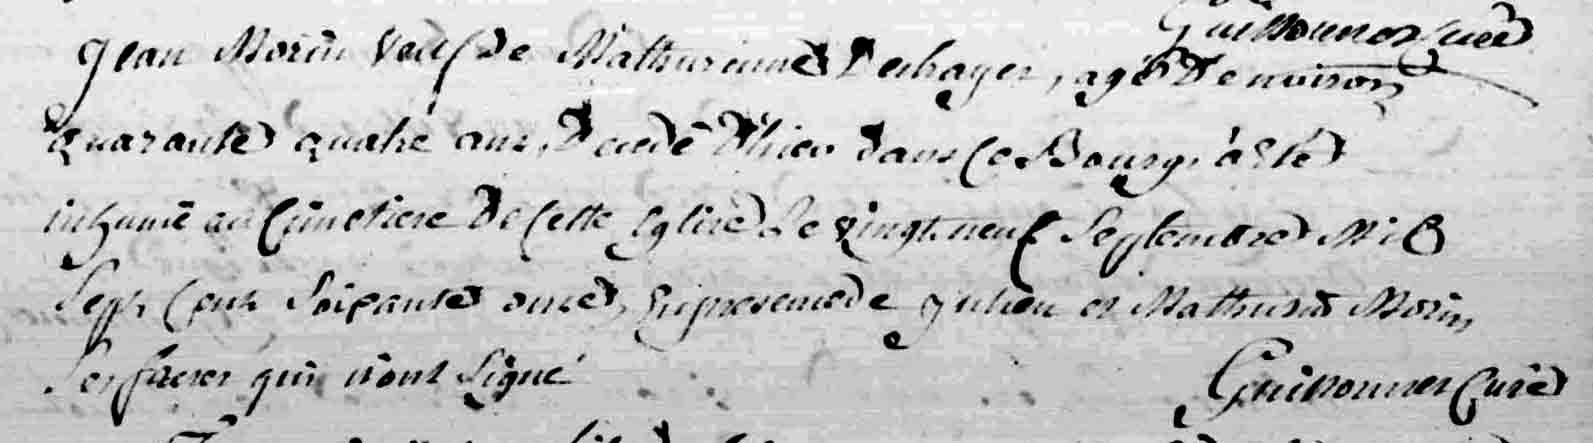 Guillonner Curé
Jean Morin veuf de Mathurinne Deshayes, agé D'environ
quarante quatre ans, Decedé d'hier dans ce Bourg, a Eté
inhumé au Cimetiere De Cette Eglise Le vingt neuf Septembre Mil
Sept Cent Soixante onze, En presence de Julien et Mathurin Morin
Ses freres qui n'ont Signé
Guillonner Curé